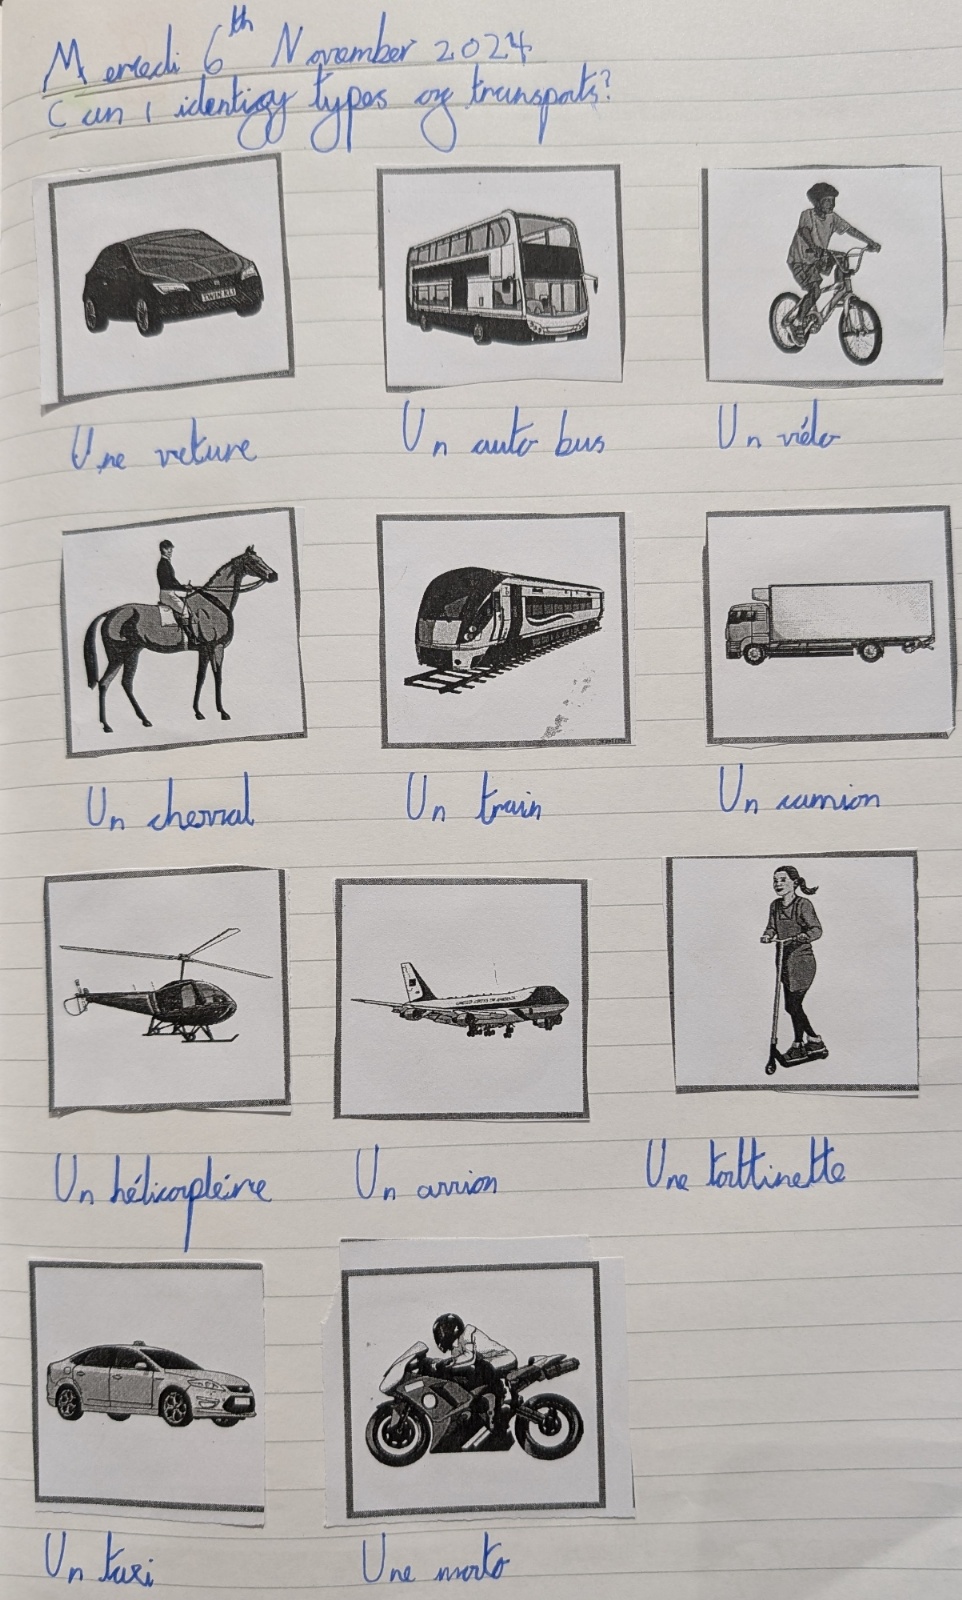 Mercredi 6th November 2024
Can I identigy types og transports?
Une veture
Un auto bus
Un vélo
Un cheval
Un train
Un camion
Un hélicorpléire
Un avion
Une tottinette
Un taxi
Une moto